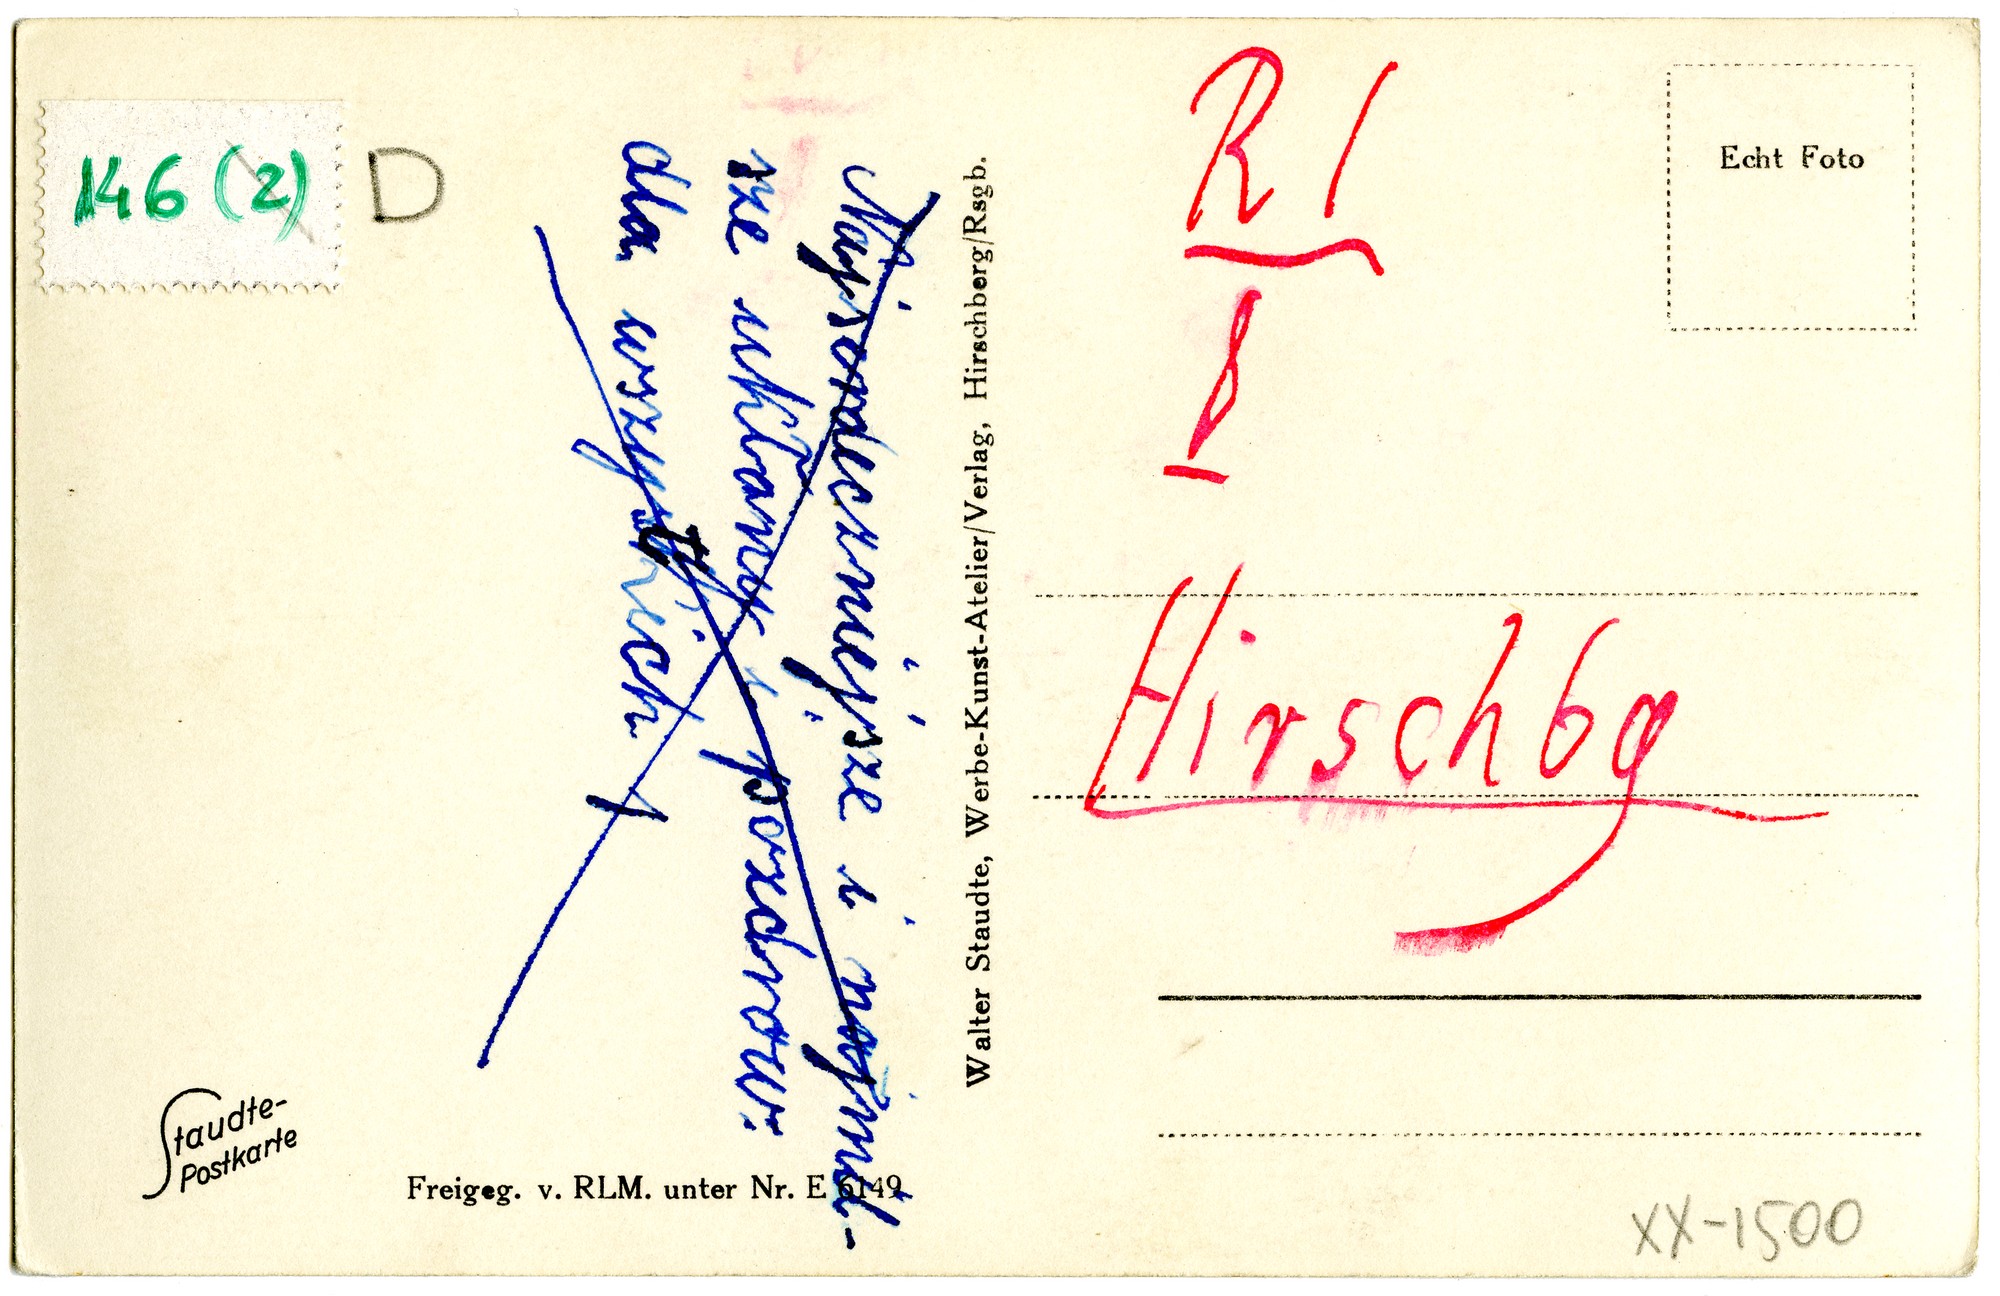 146 (2) D
Najserdeczniejsze i najmil-
sze ukłony i pozdrow:
dla wszystkich
Walter Staudte, Werbe-Kunst-Atelier/Verlag, Hirschberg/Rsgb.
Staudte-
Postkarte
Freigeg. v. RLM. unter Nr. E 6149
R I
Echt Foto
Hirschbg
XX-1500